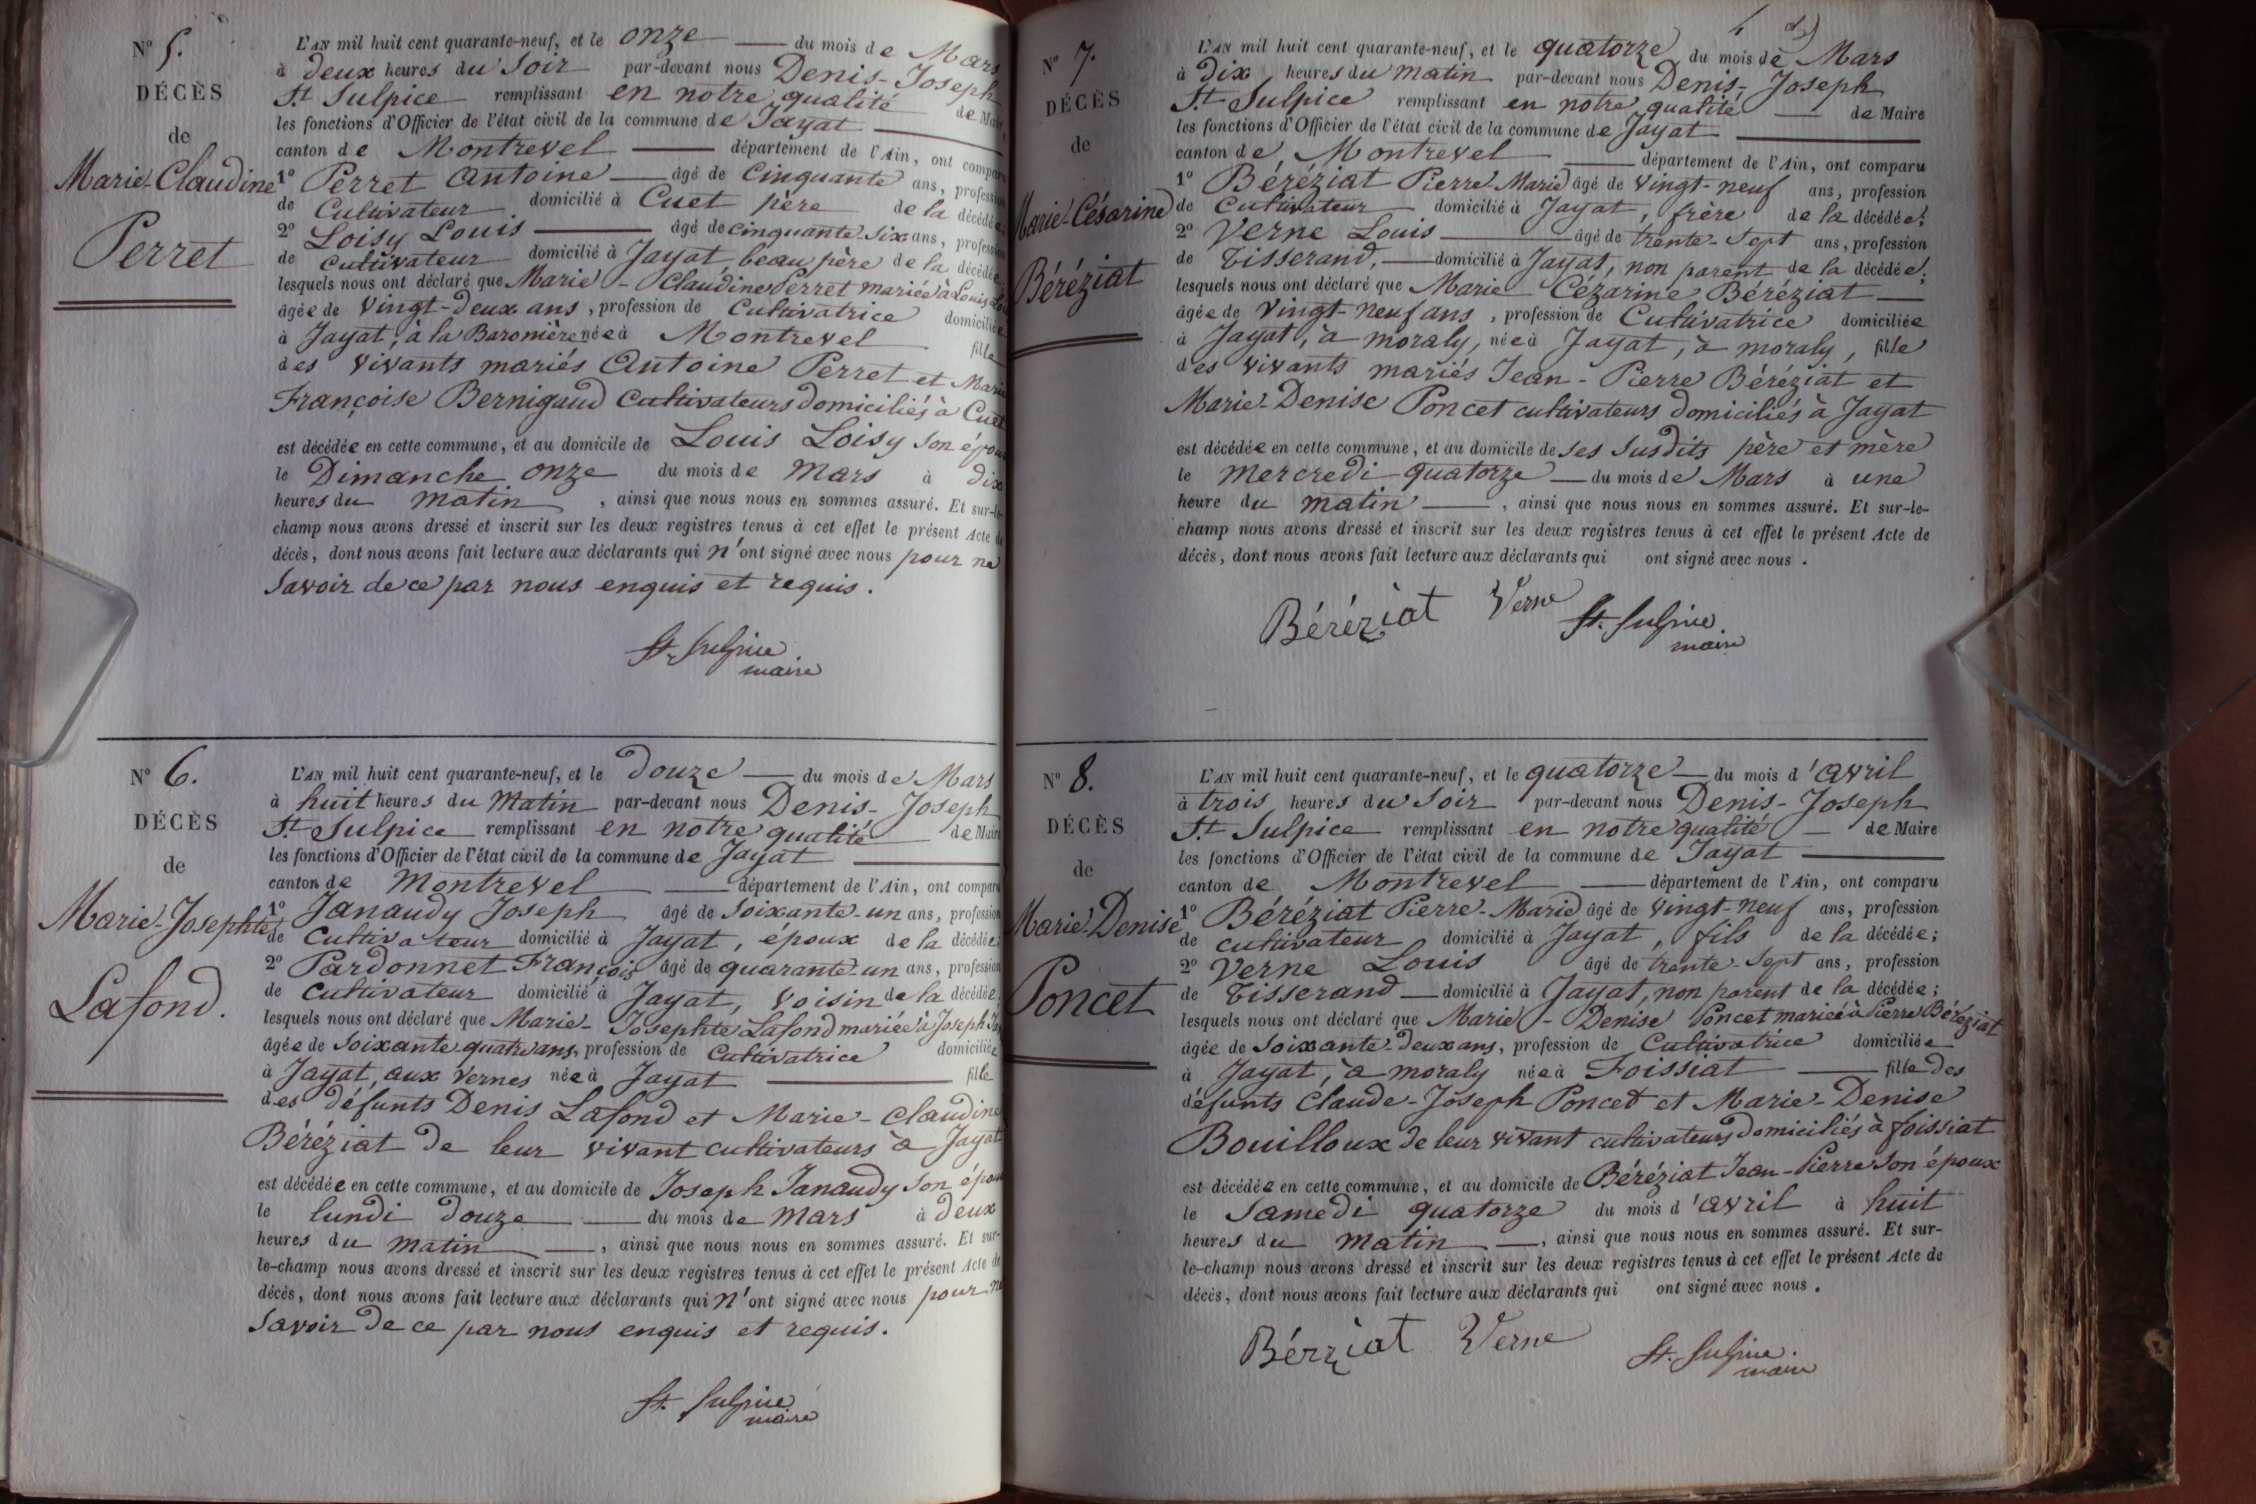 N° 5.
DÉCÈS
de
Marie-Claudine
Perret
L'AN mil huit cent quarante-neuf, et le onze du mois de Mars
à deux heures du Soir par-devant nous Denis-Joseph
St Sulpice remplissant en notre qualité de Maire
les fonctions d'Officier de l'état civil de la commune de Jayat
canton de Montrevel département de l'Ain, ont comparu
1° Perret Antoine âgé de Cinquante ans, profession
de Cultivateur domicilié à Cuet père de la décédée
2° Loisy Louis âgé de cinquante-six ans, profession
de Cultivateur domicilié à Jayat beau père de la décédée
lesquels nous ont déclaré que Marie-Claudine Perret mariée à Louis
âgée de vingt-deux ans, profession de Cultivatrice domiciliée
à Jayat, à la Baronière née à Montrevel fille
des vivants mariés Antoine Perret et Marie
Françoise Bernigaud Cultivateurs domiciliés à Cuet
est décédée en cette commune, et au domicile de Louis Loisy son époux
le Dimanche onze du mois de Mars à dix
heures du matin, ainsi que nous nous en sommes assuré. Et sur-le-
champ nous avons dressé et inscrit sur les deux registres tenus à cet effet le présent Acte de
décès, dont nous avons fait lecture aux déclarants qui n'ont signé avec nous pour ne
savoir de ce par nous enquis et requis.
St. Sulpice
maire
N° 6.
DÉCÈS
de
Marie-Josephte
Lafond.
L'AN mil huit cent quarante-neuf, et le douze du mois de Mars
à huit heures du Matin par-devant nous Denis-Joseph
St Sulpice remplissant en notre qualité de Maire
les fonctions d'Officier de l'état civil de la commune de Jayat
canton de Montrevel département de l'Ain, ont comparu
1° Janaudy Joseph âgé de soixante-un ans, profession
de Cultivateur domicilié à Jayat, époux de la décédée;
2° Pardonnet François âgé de quarante-un ans, profession
de Cultivateur domicilié à Jayat, voisin de la décédée
lesquels nous ont déclaré que Marie-Josephte Lafond mariée à Joseph
âgée de soixante-quatre ans, profession de Cultivatrice domiciliée
à Jayat, aux Vernes née à Jayat fille
des défunts Denis Lafond et Marie-Claudine
Béréziat de leur vivant cultivateurs à Jayat
est décédée en cette commune, et au domicile de Joseph Janaudy son époux
le lundi douze du mois de mars à deux
heures du matin, ainsi que nous nous en sommes assuré. Et sur-
le-champ nous avons dressé et inscrit sur les deux registres tenus à cet effet le présent Acte de
décès, dont nous avons fait lecture aux déclarants qui n'ont signé avec nous pour ne
savoir de ce par nous enquis et requis.
St. Sulpice
maire
N° 7.
DÉCÈS
de
Marie-Césarine
Béréziat
L'AN mil huit cent quarante-neuf, et le quatorze du mois de Mars
à dix heures du matin par-devant nous Denis-Joseph
St Sulpice remplissant en notre qualité de Maire
les fonctions d'Officier de l'état civil de la commune de Jayat
canton de Montrevel département de l'Ain, ont comparu
1° Béréziat Pierre-Marie âgé de vingt-neuf ans, profession
de Cultivateur domicilié à Jayat, frère de la décédée;
2° Verne Louis âgé de trente-sept ans, profession
de Tisserand, domicilié à Jayat, non parent de la décédée;
lesquels nous ont déclaré que Marie Cézarine Béréziat
âgée de vingt-neuf ans, profession de Cultivatrice domiciliée
à Jayat, à moraly, née à Jayat, à moraly, fille
des vivants mariés Jean-Pierre Béréziat et
Marie-Denise Poncet cultivateurs domiciliés à Jayat
est décédée en cette commune, et au domicile de ses susdits père et mère
le mercredi quatorze du mois de Mars à une
heure du matin, ainsi que nous nous en sommes assuré. Et sur-le-
champ nous avons dressé et inscrit sur les deux registres tenus à cet effet le présent Acte de
décès, dont nous avons fait lecture aux déclarants qui ont signé avec nous.
Béréziat Verne St. Sulpice
maire
N° 8.
DÉCÈS
de
Marie-Denise
Poncet
L'AN mil huit cent quarante-neuf, et le quatorze du mois d'avril
à trois heures du Soir par-devant nous Denis-Joseph
St Sulpice remplissant en notre qualité de Maire
les fonctions d'Officier de l'état civil de la commune de Jayat
canton de Montrevel département de l'Ain, ont comparu
1° Béréziat Pierre-Marie âgé de vingt-neuf ans, profession
de cultivateur domicilié à Jayat, fils de la décédée;
2° Verne Louis âgé de trente-sept ans, profession
de Tisserand domicilié à Jayat, non parent de la décédée;
lesquels nous ont déclaré que Marie-Denise Poncet mariée à Pierre Béréziat
âgée de soixante-deux ans, profession de Cultivatrice domiciliée
à Jayat, à moraly née à Foissiat fille des
défunts Claude-Joseph Poncet et Marie-Denise
Bouilloux de leur vivant cultivateurs domiciliés à foissiat
est décédée en cette commune, et au domicile de Béréziat Jean-Pierre son époux
le samedi quatorze du mois d'avril à huit
heures du matin, ainsi que nous nous en sommes assuré. Et sur-
le-champ nous avons dressé et inscrit sur les deux registres tenus à cet effet le présent Acte de
décès, dont nous avons fait lecture aux déclarants qui ont signé avec nous.
Bérziat Verne St. Sulpice.
maire